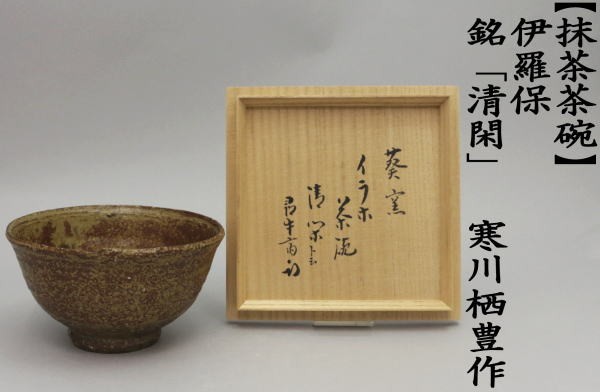 【抹茶茶碗】
伊羅保
銘「清閑」 寒川栖豊作
葵窯
イラホ
茶碗
清閑ト云